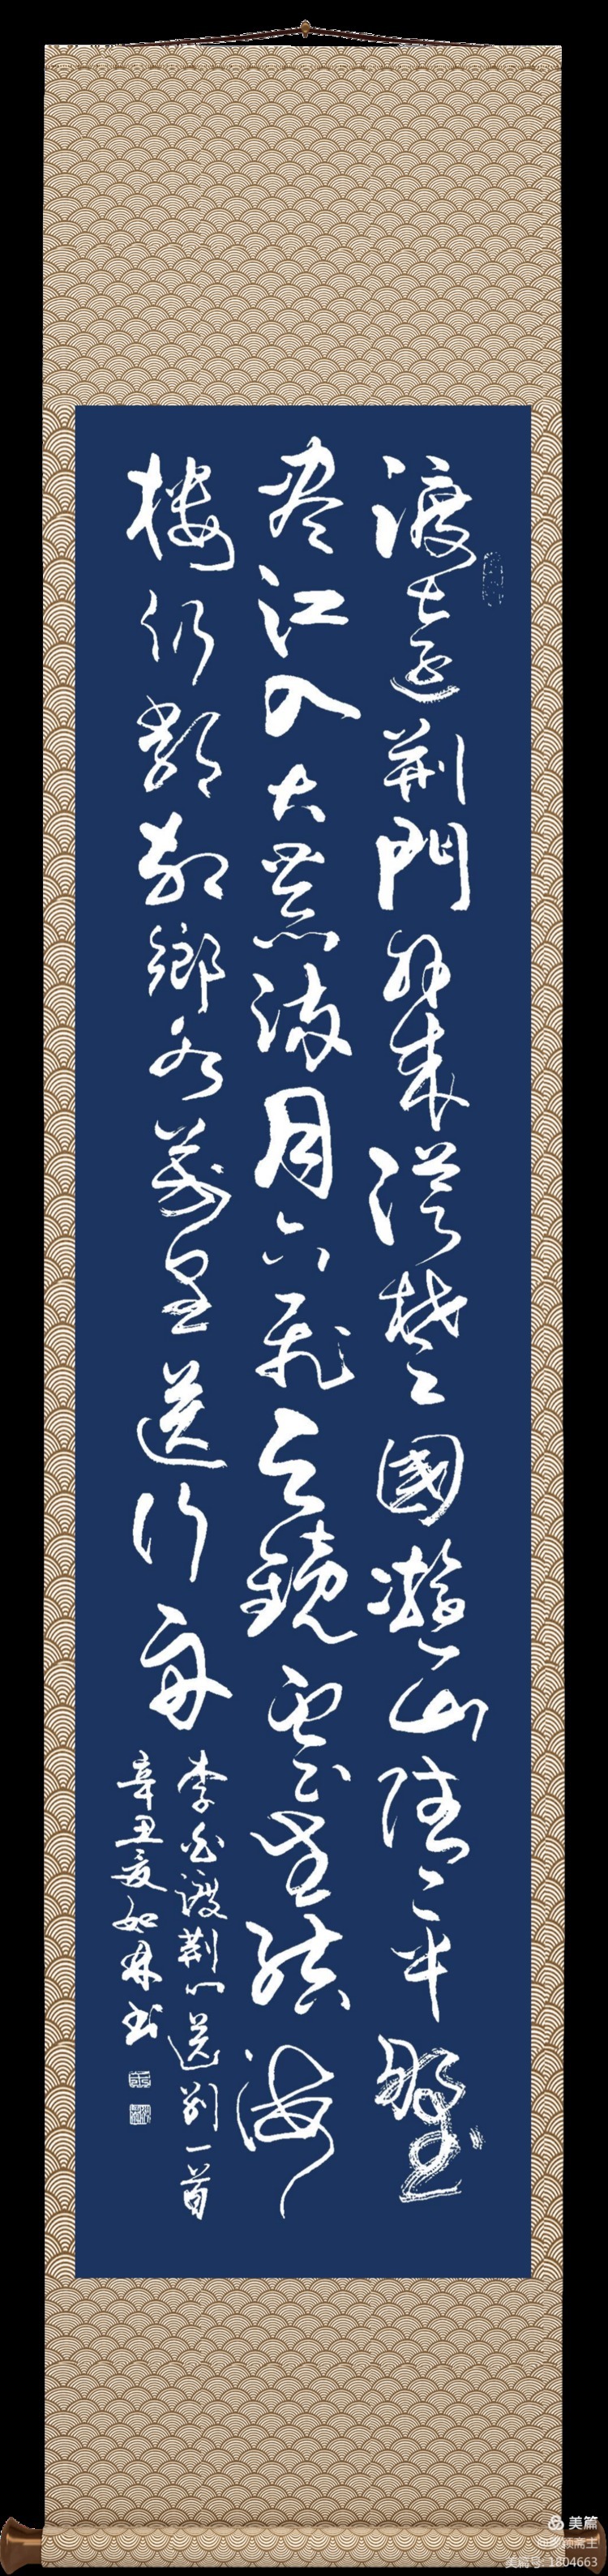 渡遠荊門外來從楚國遊山隨平野
尽江入大荒流月下飛天鏡雲生結海
樓仍憐故鄉水萬里送行舟
李白渡荊门送别一首
辛丑夏如林书
美篇
美篇号: 1804663